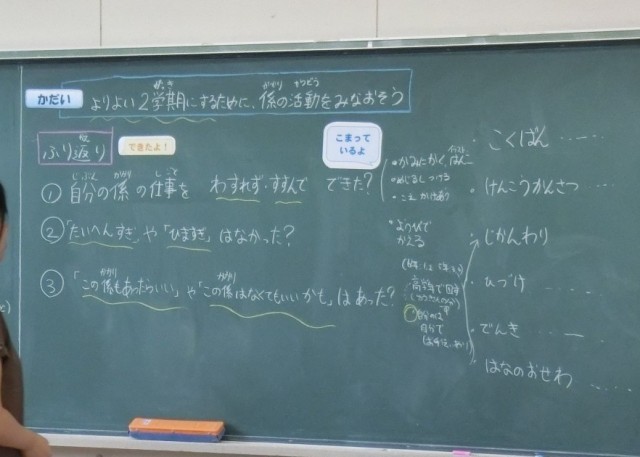 かだい
よりよい2学期にするために、係の活動をみなおそう
ふり返り
できたよ!
こまって
いるよ
①自分の係の仕事を わすれず・すすんで できた?
②「たいへんすぎ」や「ひますぎ」はなかった?
③「この係もあったらいい」や「この係はなくてもいいかも」はあった?
・めじるしつける
・ようびで
かえる
・こくばん
・けんこうかんさつ
・じかんわり
・ひづけ
・でんき
・はなのおせわ